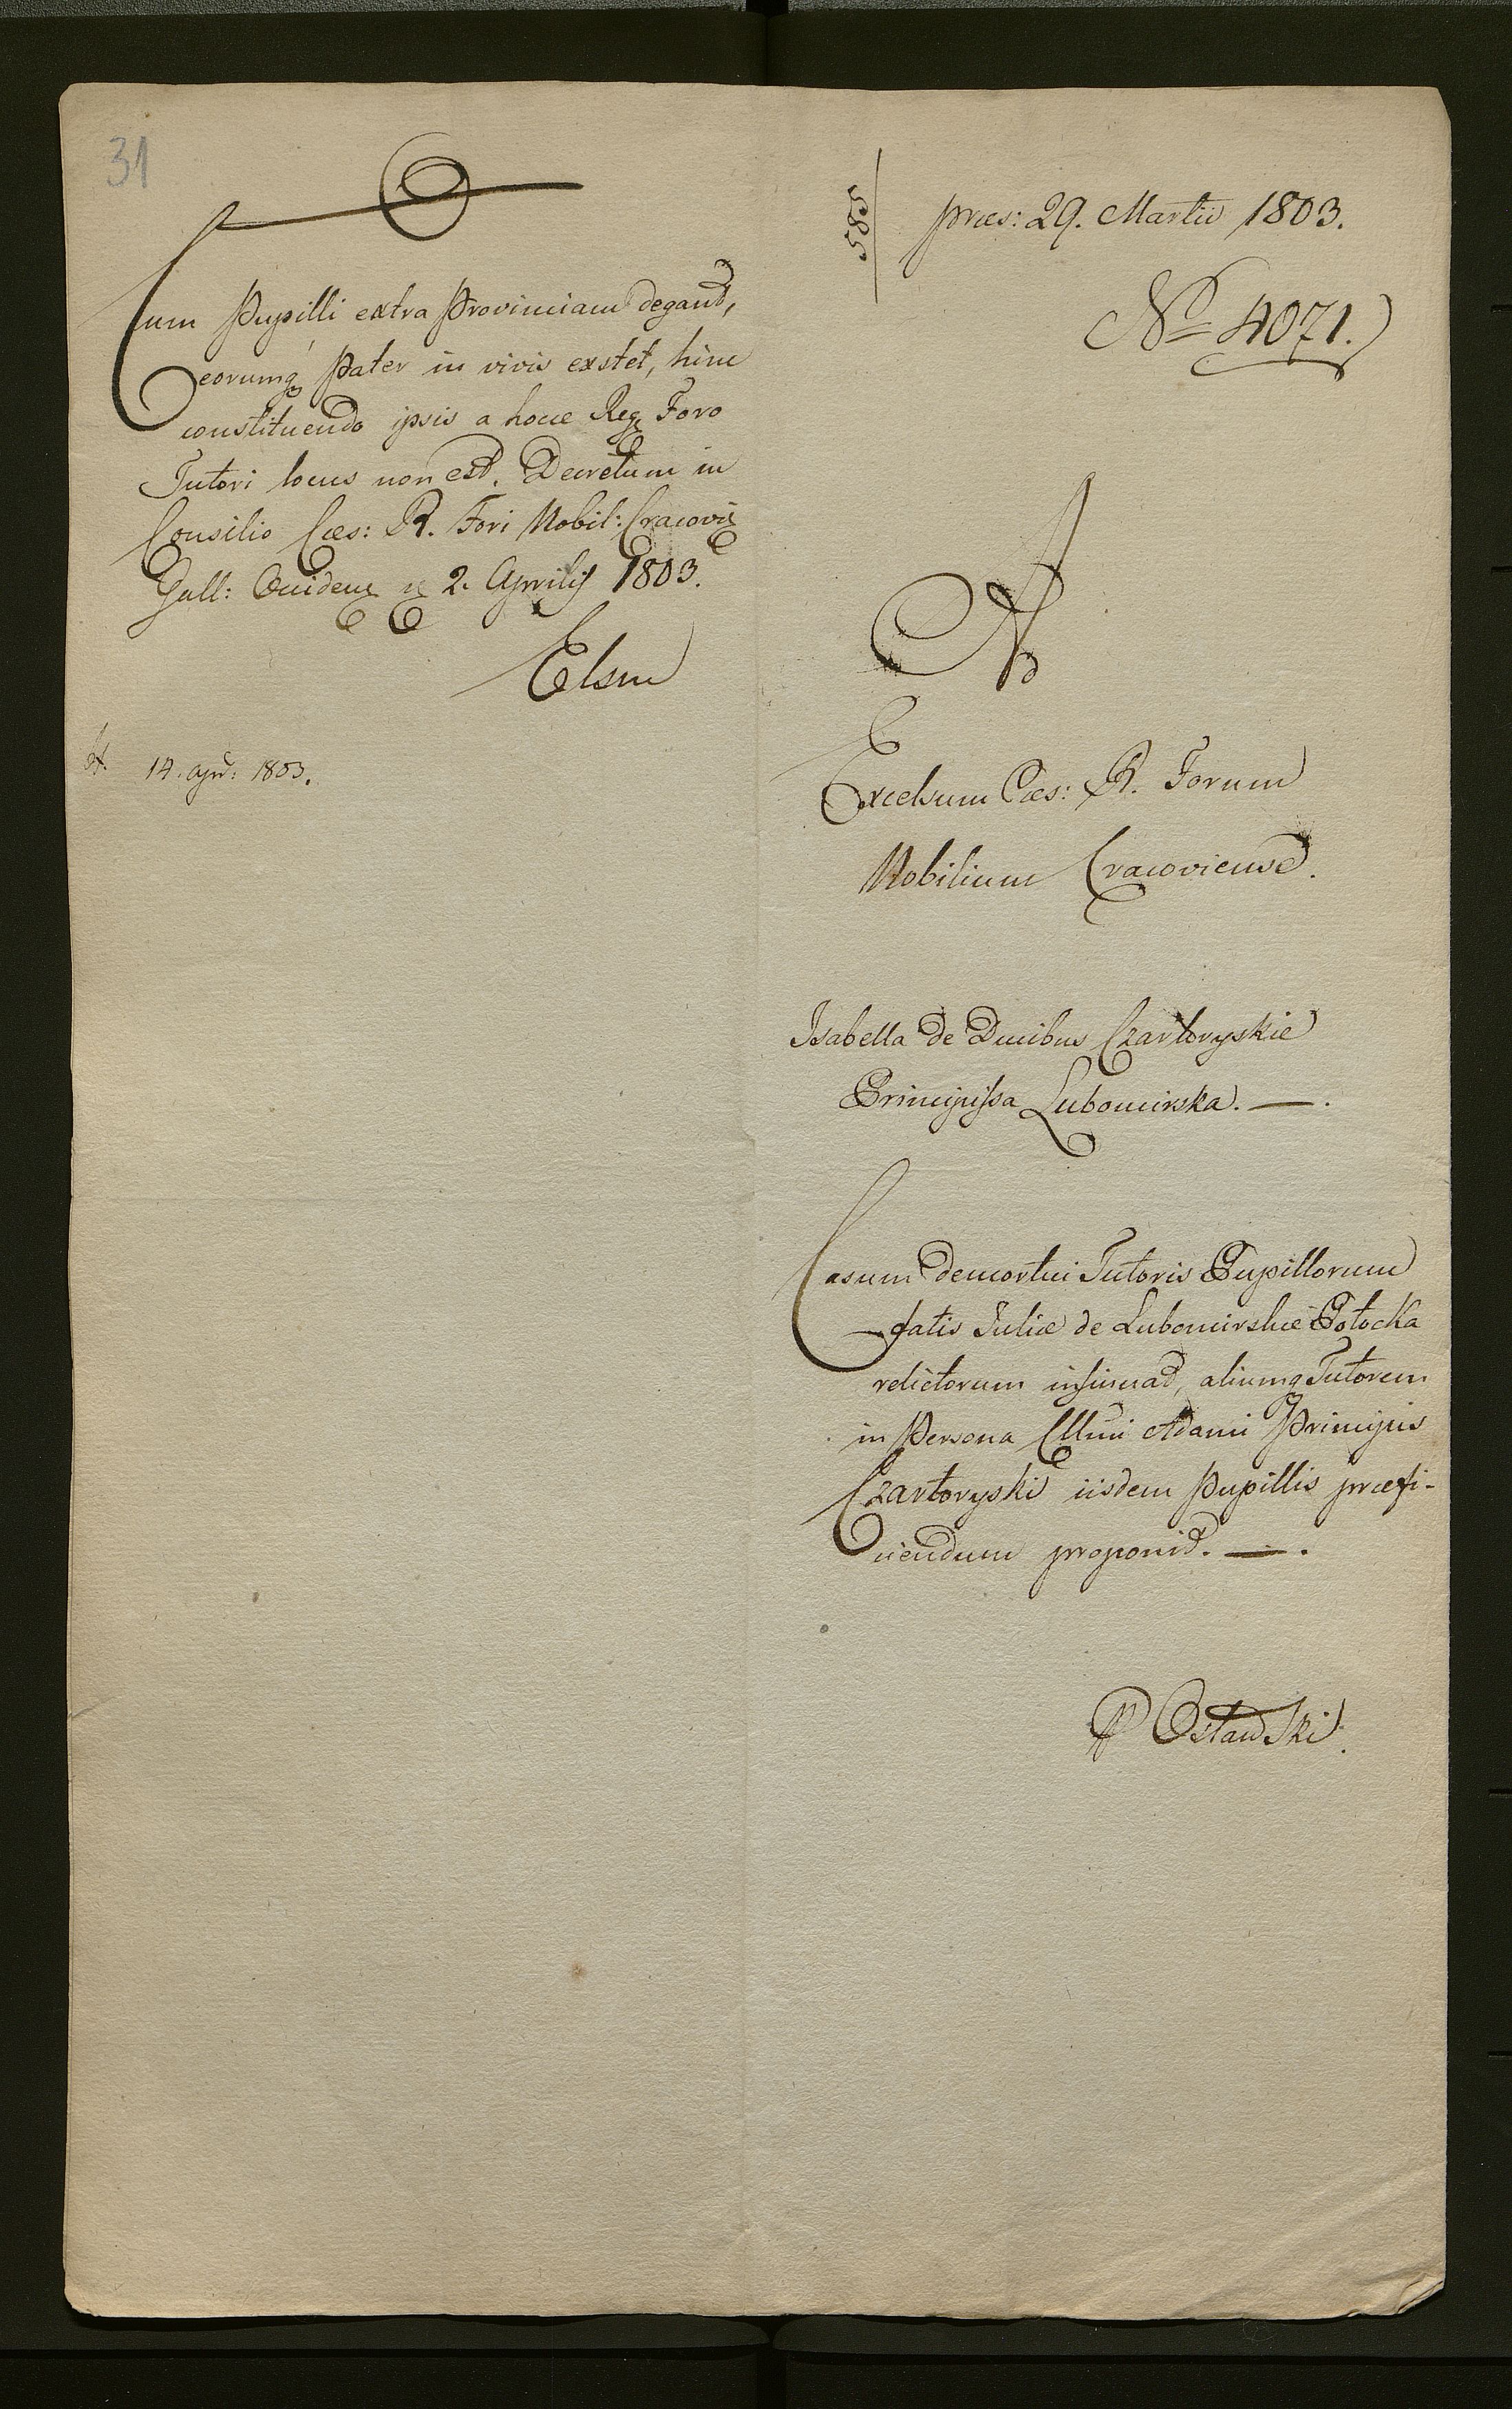 31
Cum Pupilli extra Provinciam degant,
eorumq Pater in vivis exstet, hinc
constituendo ipsis a hocce Reg Foro
Tutori locus non est. Decretum in
Consilio Cæs: R. Fori Nobil: Cracoviæ
Gall: Occiden 2. Aprilis 1803.
Elsne
14. apr: 1803.
585
præs: 29. Martii 1803.
No 4071.
Ad
Excelsum Cæs: R. Forum
Nobilium Cracoviense.
Isabella de Ducibus Czartoryskie
Principissa Lubomirska. —.
Casum demortui Tutoris Pupillorum
fatis Juliæ de Lubomirskie Potocka
relictorum insinuat, aliumq Tutorem
in Persona Cllmi Adami Principis
Czartoryski iisdem Pupillis præfi-
ciendum proponit. —.
Ostawski